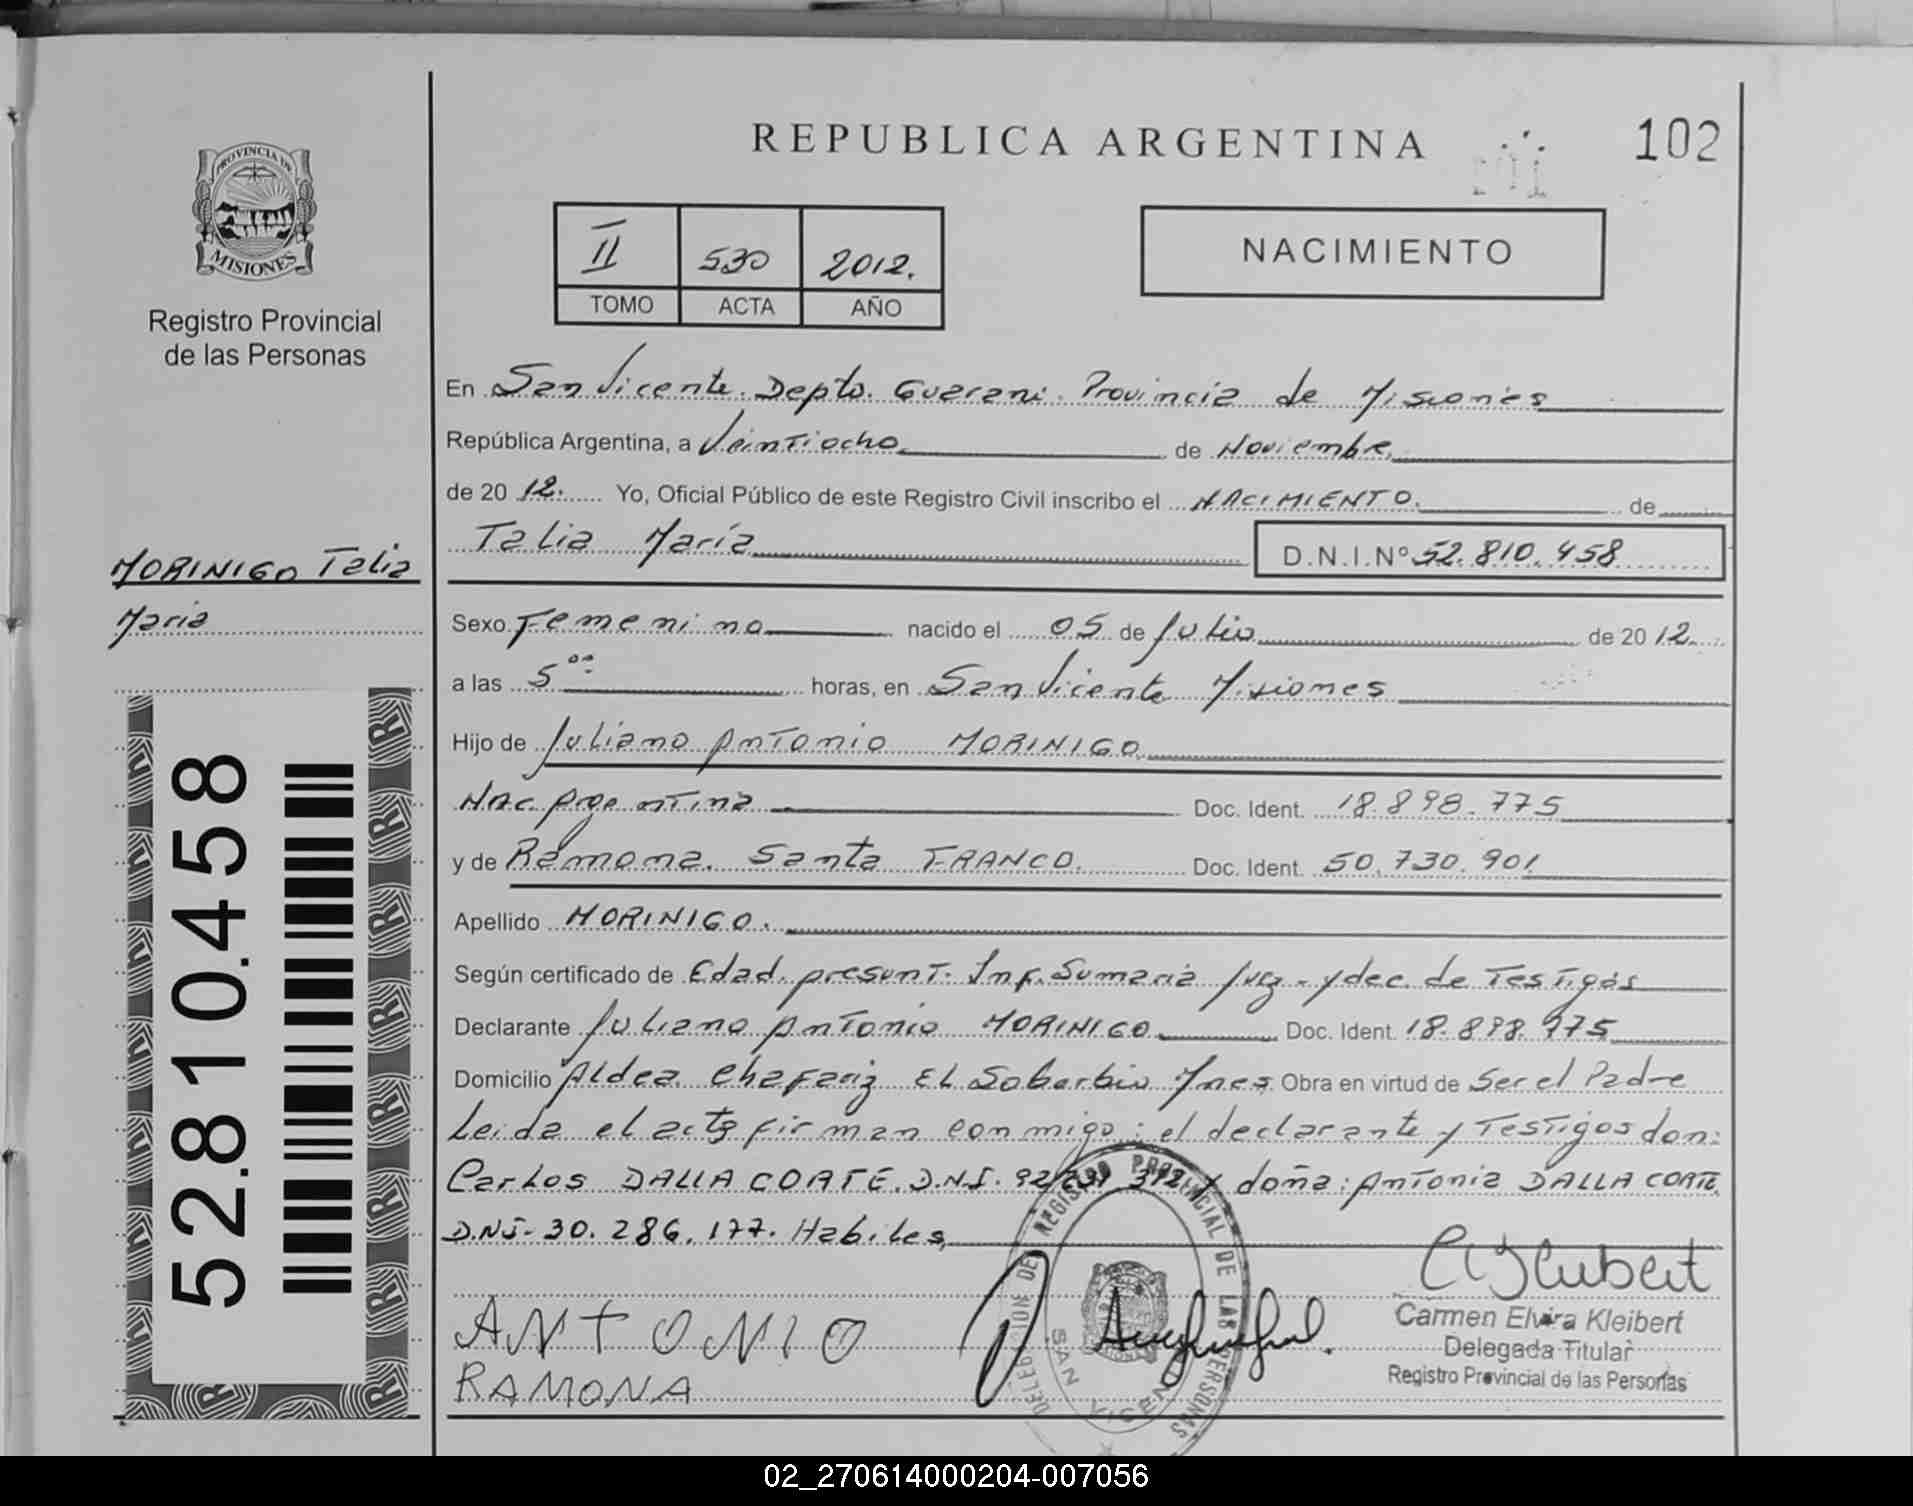 REPUBLICA ARGENTINA
102
PROVINCIA DE
MISIONES
Registro Provincial
de las Personas
II 530 2012.
TOMO ACTA AÑO
NACIMIENTO
En San Vicente. Depto. Guarani. Provincia de Misiones
República Argentina, a Veintiocho de Noviembre
de 20 12. Yo, Oficial Público de este Registro Civil inscribo el NACIMIENTO. de
Talia María D.N.I.Nº 52.810.458
MORINIGO Talia
Maria
Sexo Femenino nacido el 05 de Julio de 20 12
a las 5 00 horas, en San Vicente Misiones
Hijo de Juliano Antonio MORINIGO
Nac. Argentina Doc. Ident. 18.898.775
y de Ramona. Santa FRANCO. Doc. Ident. 50.730.901
Apellido MORINIGO.
Según certificado de Edad. presunt. Inf. Sumaria Juz. y dec. de Testigos
Declarante Juliano Antonio MORINIGO Doc. Ident. 18.898.775
Domicilio Aldea Chafariz El Soberbio Mnes Obra en virtud de Ser el Padre
Leida el acta firman conmigo: el declarante y Testigos don:
Carlos DALLA CORTE. D.N.I. 92 312 y doña: Antonia DALLA CORTE
D.N.I- 30.286.177. Habiles
ANTONIO
RAMONA
DELEGACION DEL REGISTRO PROVINCIAL DE LAS PERSONAS
SAN VICEN
Carmen Elvira Kleibert
Delegada Titular
Registro Provincial de las Personas
52.810.458
02_270614000204-007056